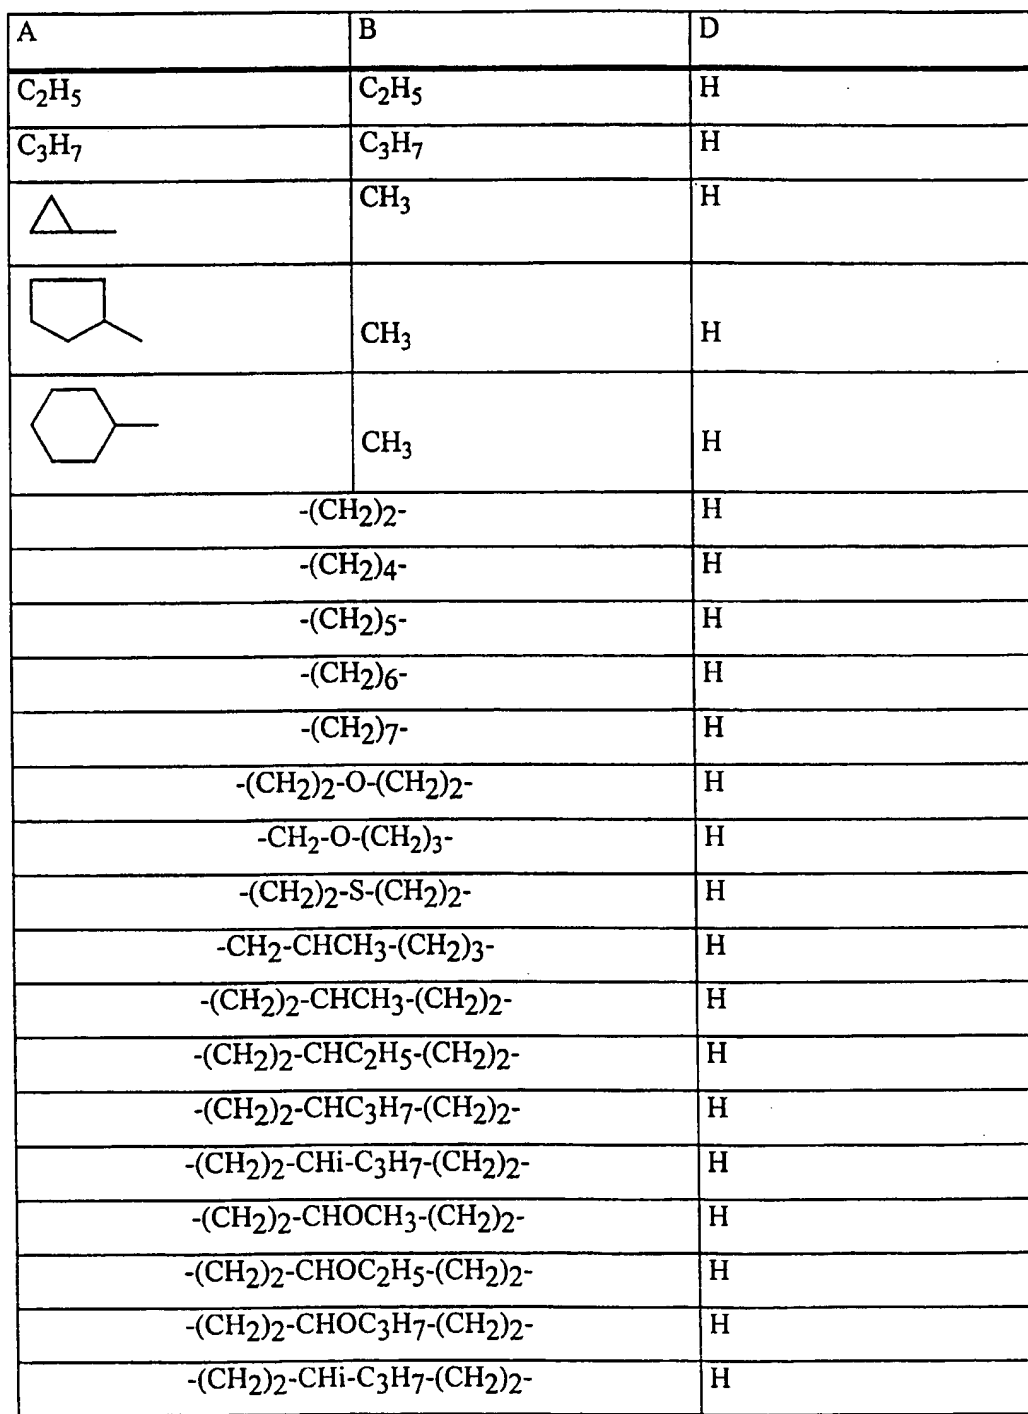 A B D
C2H5 C2H5 H
C3H7 C3H7 H
CH3 H
CH3 H
CH3 H
-(CH2)2- H
-(CH2)4- H
-(CH2)5- H
-(CH2)6- H
-(CH2)7- H
-(CH2)2-O-(CH2)2- H
-CH2-O-(CH2)3- H
-(CH2)2-S-(CH2)2- H
-CH2-CHCH3-(CH2)3- H
-(CH2)2-CHCH3-(CH2)2- H
-(CH2)2-CHC2H5-(CH2)2- H
-(CH2)2-CHC3H7-(CH2)2- H
-(CH2)2-CHi-C3H7-(CH2)2- H
-(CH2)2-CHOCH3-(CH2)2- H
-(CH2)2-CHOC2H5-(CH2)2- H
-(CH2)2-CHOC3H7-(CH2)2- H
-(CH2)2-CHi-C3H7-(CH2)2- H